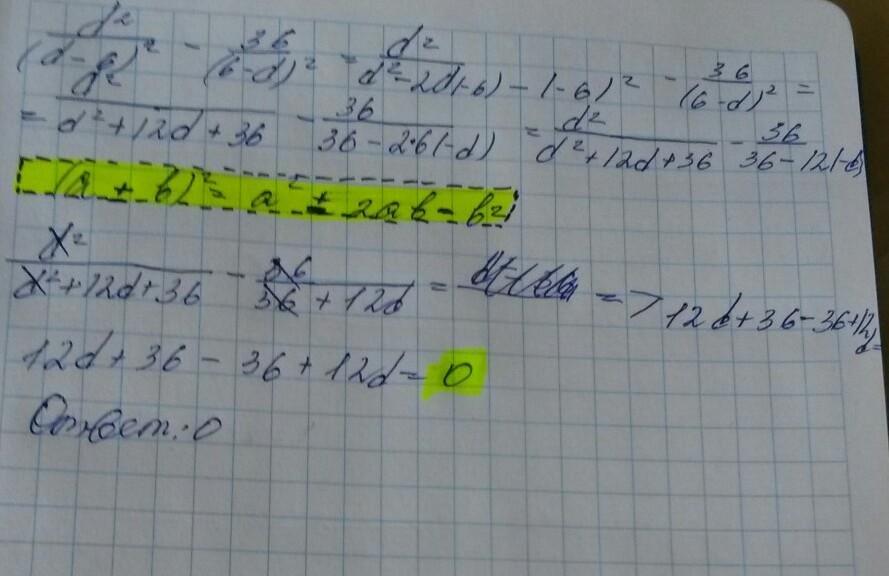 d²/(d-6)² - 36/(6-d)² = d²/d²-2d(-6)-(-6)² - 36/(6-d)² =
= d²/d²+12d+36 - 36/36-2·6(-d) = d²/d²+12d+36 - 36/36-12(-d)
(a ± b)² = a² ± 2ab - b²
d²/d²+12d+36 - 36/36+12d = => 12d+36-36+12d=
12d+36-36+12d=0
Ответ: 0